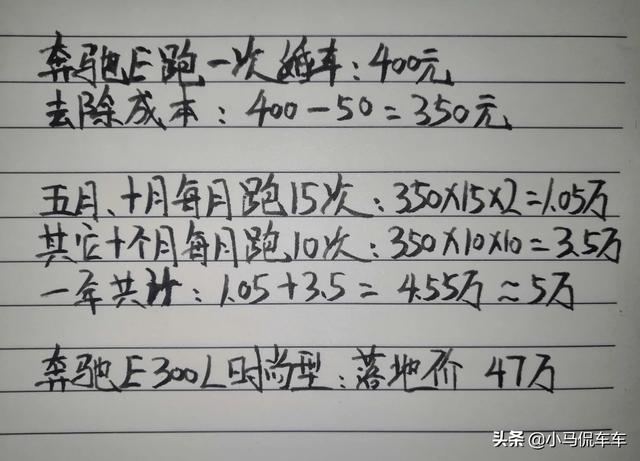 奔驰E跑一次婚车:400元
去除成本:400-50=350元
五月、十月每月跑15次:350×15×2=1.05万
其它十个月每月跑10次:350×10×10=3.5万
一年共计:1.05+3.5= 4.55万≈5万
奔驰E300L时尚型:落地价 47万
头条 @小马侃车车